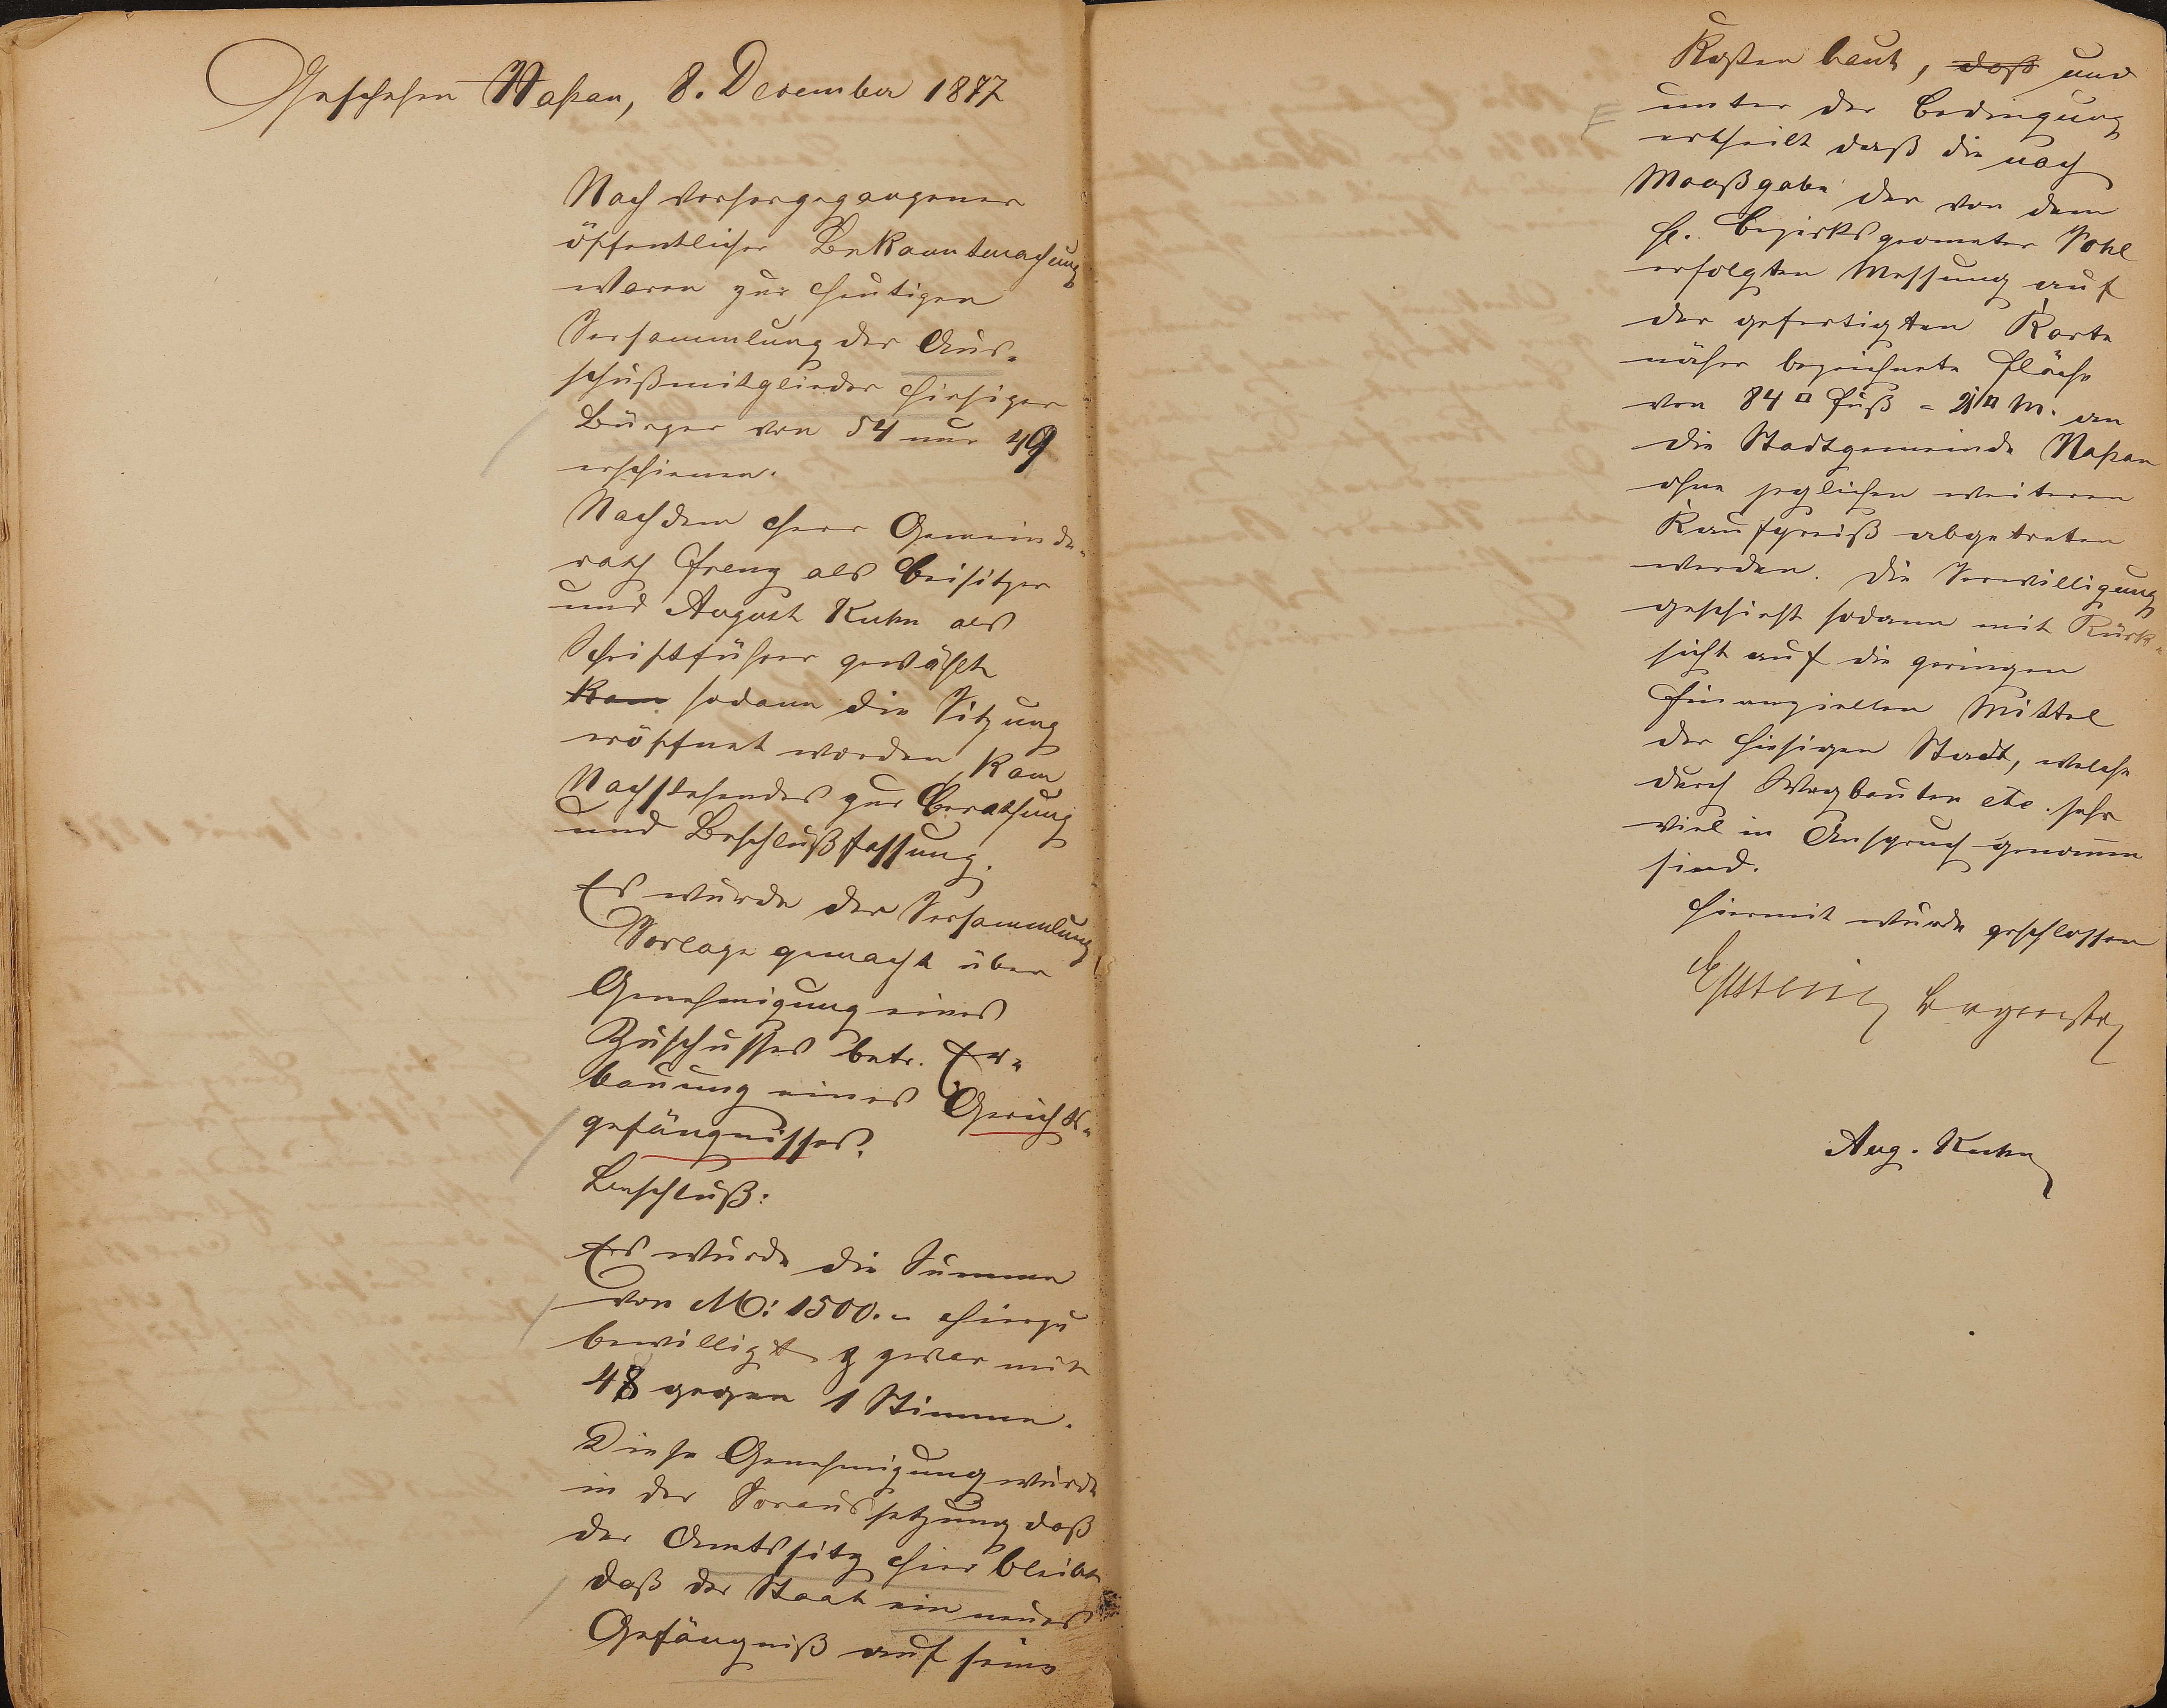 Geschehen Naßau, 8. Dezember 1877
Nach vorhergegangener
öffentlicher Bekanntmachung
waren zur heutigen
Versammlung der Aus-
schußmitglieder hiesiger
Bürger von 54 nur 49
erschienen.
Nachdem Herr Gemeinde-
rath Freng als Beisitzer
und August Kuhn als
Schriftführer gewählt
kam sodann die Sitzung
eröffnet worden, kam
Nachstehendes zur Berathung
und Beschlußfassung.
Es wurde der Versammlung
Vorlage gemacht über
Genehmigung eines
Zuschusses betr. Er-
bauung eines Gerichts-
gefängnisses.
Beschluß:
Es wurde die Summe
von M: 1500.- hierzu
bewilligt & zwar mit
48 gegen 1 Stimme.
Diese Genehmigung wurde
in der Voraussetzung daß
der Amtssitz hier bleibt
daß der Staat ein neues
Gefängniß auf seine
Kosten baut, daß und
unter der Bedingung
ertheilt daß die nach
Maaßgabe der von dem
H. Bezirksgeometer Pohl
erfolgten Messung auf
der gefertigten Karte
näher bezeichnete Fläche
von 84 □ Fuß = 21 □ M. an
die Stadtgemeinde Naßau
ohne jeglichen weiteren
Kaufpreiß abgetreten
werden. Die Verwilligung
geschieht sodann mit Rück-
sicht auf die geringen
finanziellen Mittel
der hiesigen Stadt, welche
durch Wegbauten etc. sehr
viel in Anspruch genommen
sind.
Hiermit wurde geschlossen
Bürgermstr
Aug. Kuhn